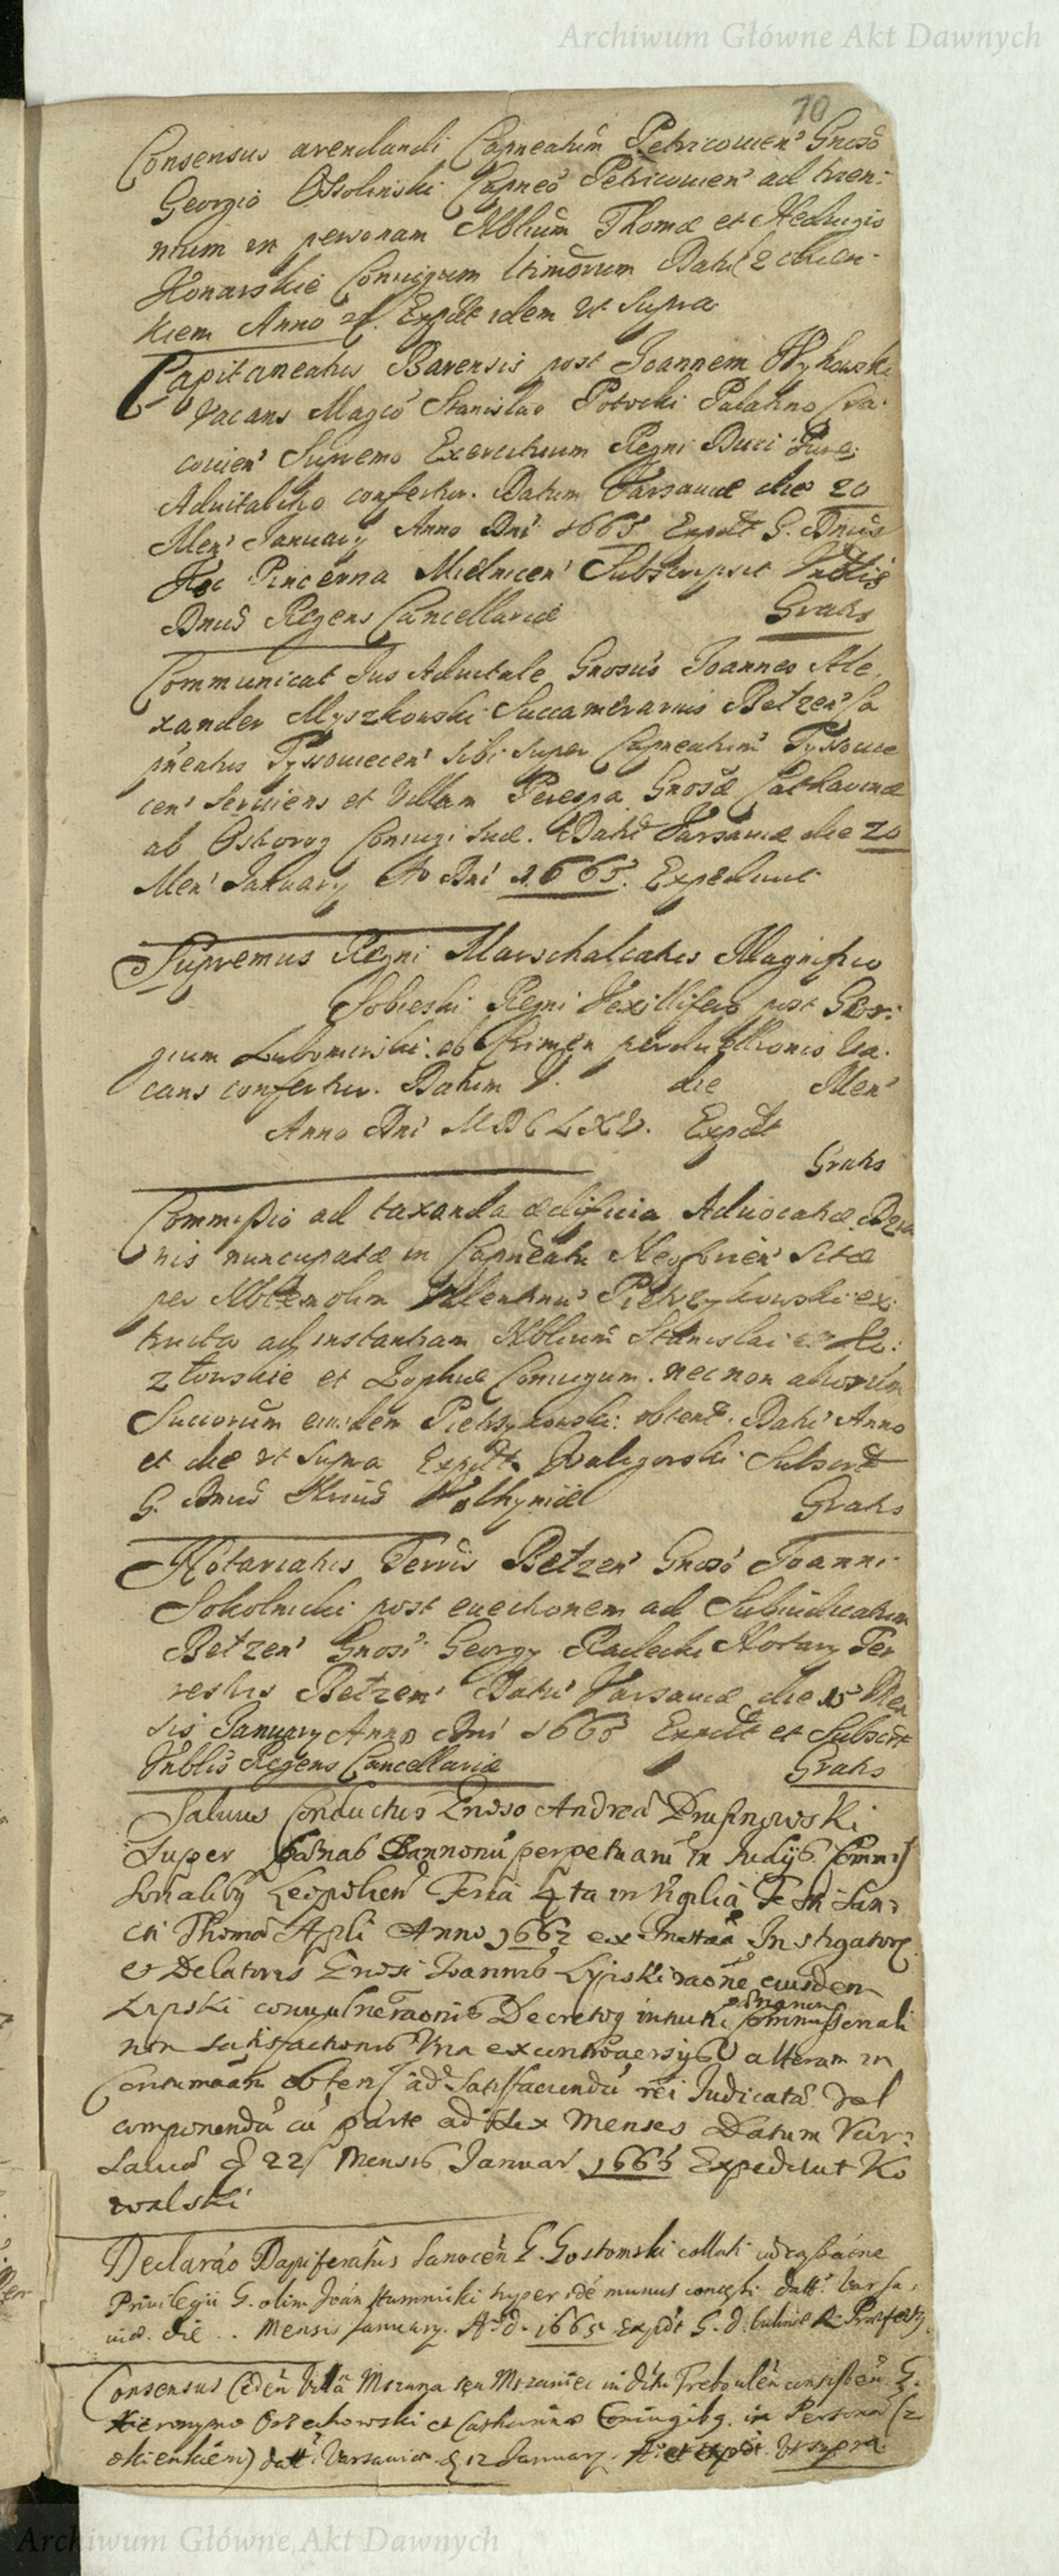 Archiwum Główne Akt Dawnych
70
Consensus arendandi Capneatum Petricovien' Gnoso
Georgio Ossolinski Capneo Petricovien' ad trien:
nium in personam Nblium Thomæ et Hedvigis
Konarskie Coniugum ltimorum Dat(z okien-
kiem Anno Expdt idem Vt Supra
Capitaneatus Barensis post Joannem Wyhowski
vacans Magco Stanislao Potocki Palatino Cra-
covien' Supremo Exercituum Regni Duci Jure
Advitalitio confertur. Datum Varsaviæ die 20
Men' January Anno Dni 1665 Expdt G. Dnus
Pincerna Mielnicen' Subscripsit Nblis
Dnus Regens Cancellariæ Gratis
Communicat Jus Advitale Gnosus Joannes Ale
xander Myszkowski Succamerarius Betzen' Ca
pneatus Tyssowiecen' sibi super Capneatum Tyssowie
cen' serviens et Villam Perespa Gnosæ Catharinæ
ab Ostorog Coniugi suæ. Dat Varsaviæ die 20
Men' January Ao Dni 1665. Expediunt
Supremus Regni Marschalcatus Magnifico
Sobieski Regni Vexillifero post Geor:
gium Lubomirski ob Crimen perduellionis va-
cans confertur. Datum V. die Men'
Anno Dni MDCLXV. Expdt
Gratis
Commissio ad taxanda ædificia Advocatiæ
nis nuncupatæ in Capneatu sitæ
per Nblem olim Valentinu' Pietrzykowski ex:
tructa ad instantiam Nblium Stanislai
ztowskie et Zophiæ Coniugum. nec non aliorum
Succorum eiusdem Pietrzykowski: obtent. Dat Anno
et die vt supra Expdt Waligorski Subscrt
G. Dnus Wolhyniæ Gratis
Notariatus Terris Betzen' Gnoso Joanni
Sokolnicki post evectionem ad Subiudicatum
Betzen' Gnosi Georgy Radecki Notary Ter
restris Betzen' Dat Varsaviæ die 15 Men
sis January Anno Dni 1665 Expdt et Subscrt
Nblis Regens Cancellariæ Gratis
Salvus Conductus Gnoso Andreæ Drusinowski
Super Pœnas Bannonu' perpetuaru' in Judijs Commis
sorialiby Leopolien' Feria 4ta in Vigilia Festi San-
cti Thomæ Apli Anno 1662 ex Insttia Instigatory
et Delatoris Gnosi Joannis Lypski raone eiusdem
Lypski convulneraonis Decretoq intuitu Commissoriali
non satisfactionis Vna ex controversijs alteram in
Contumaciam obten' ad satisfaciendu' rei Judicatæ vel
componendu' cu' parte ad sex Menses Datum Var-
saviæ d 22 Mensis Januar 1665 Expedivit Ko
walski
Declarao Dapiferatus Sanocen' G. Gostomski collati
Privilegii G. olim Joan' Humnicki super idem munus concessi datt. Varsa,
viæ. die .. Mensis January. Ao d. 1665 Expdt G. d.
Consensus Ceden' Villa' Mszana seu Mszaniec
Hieronymo Orzechowski et Catharinæ Coniugibq. in Persona (z
okienkiem) datt. Varsaviæ d 12 January. Ao et Expdt Vt supra
Archiwum Główne Akt Dawnych